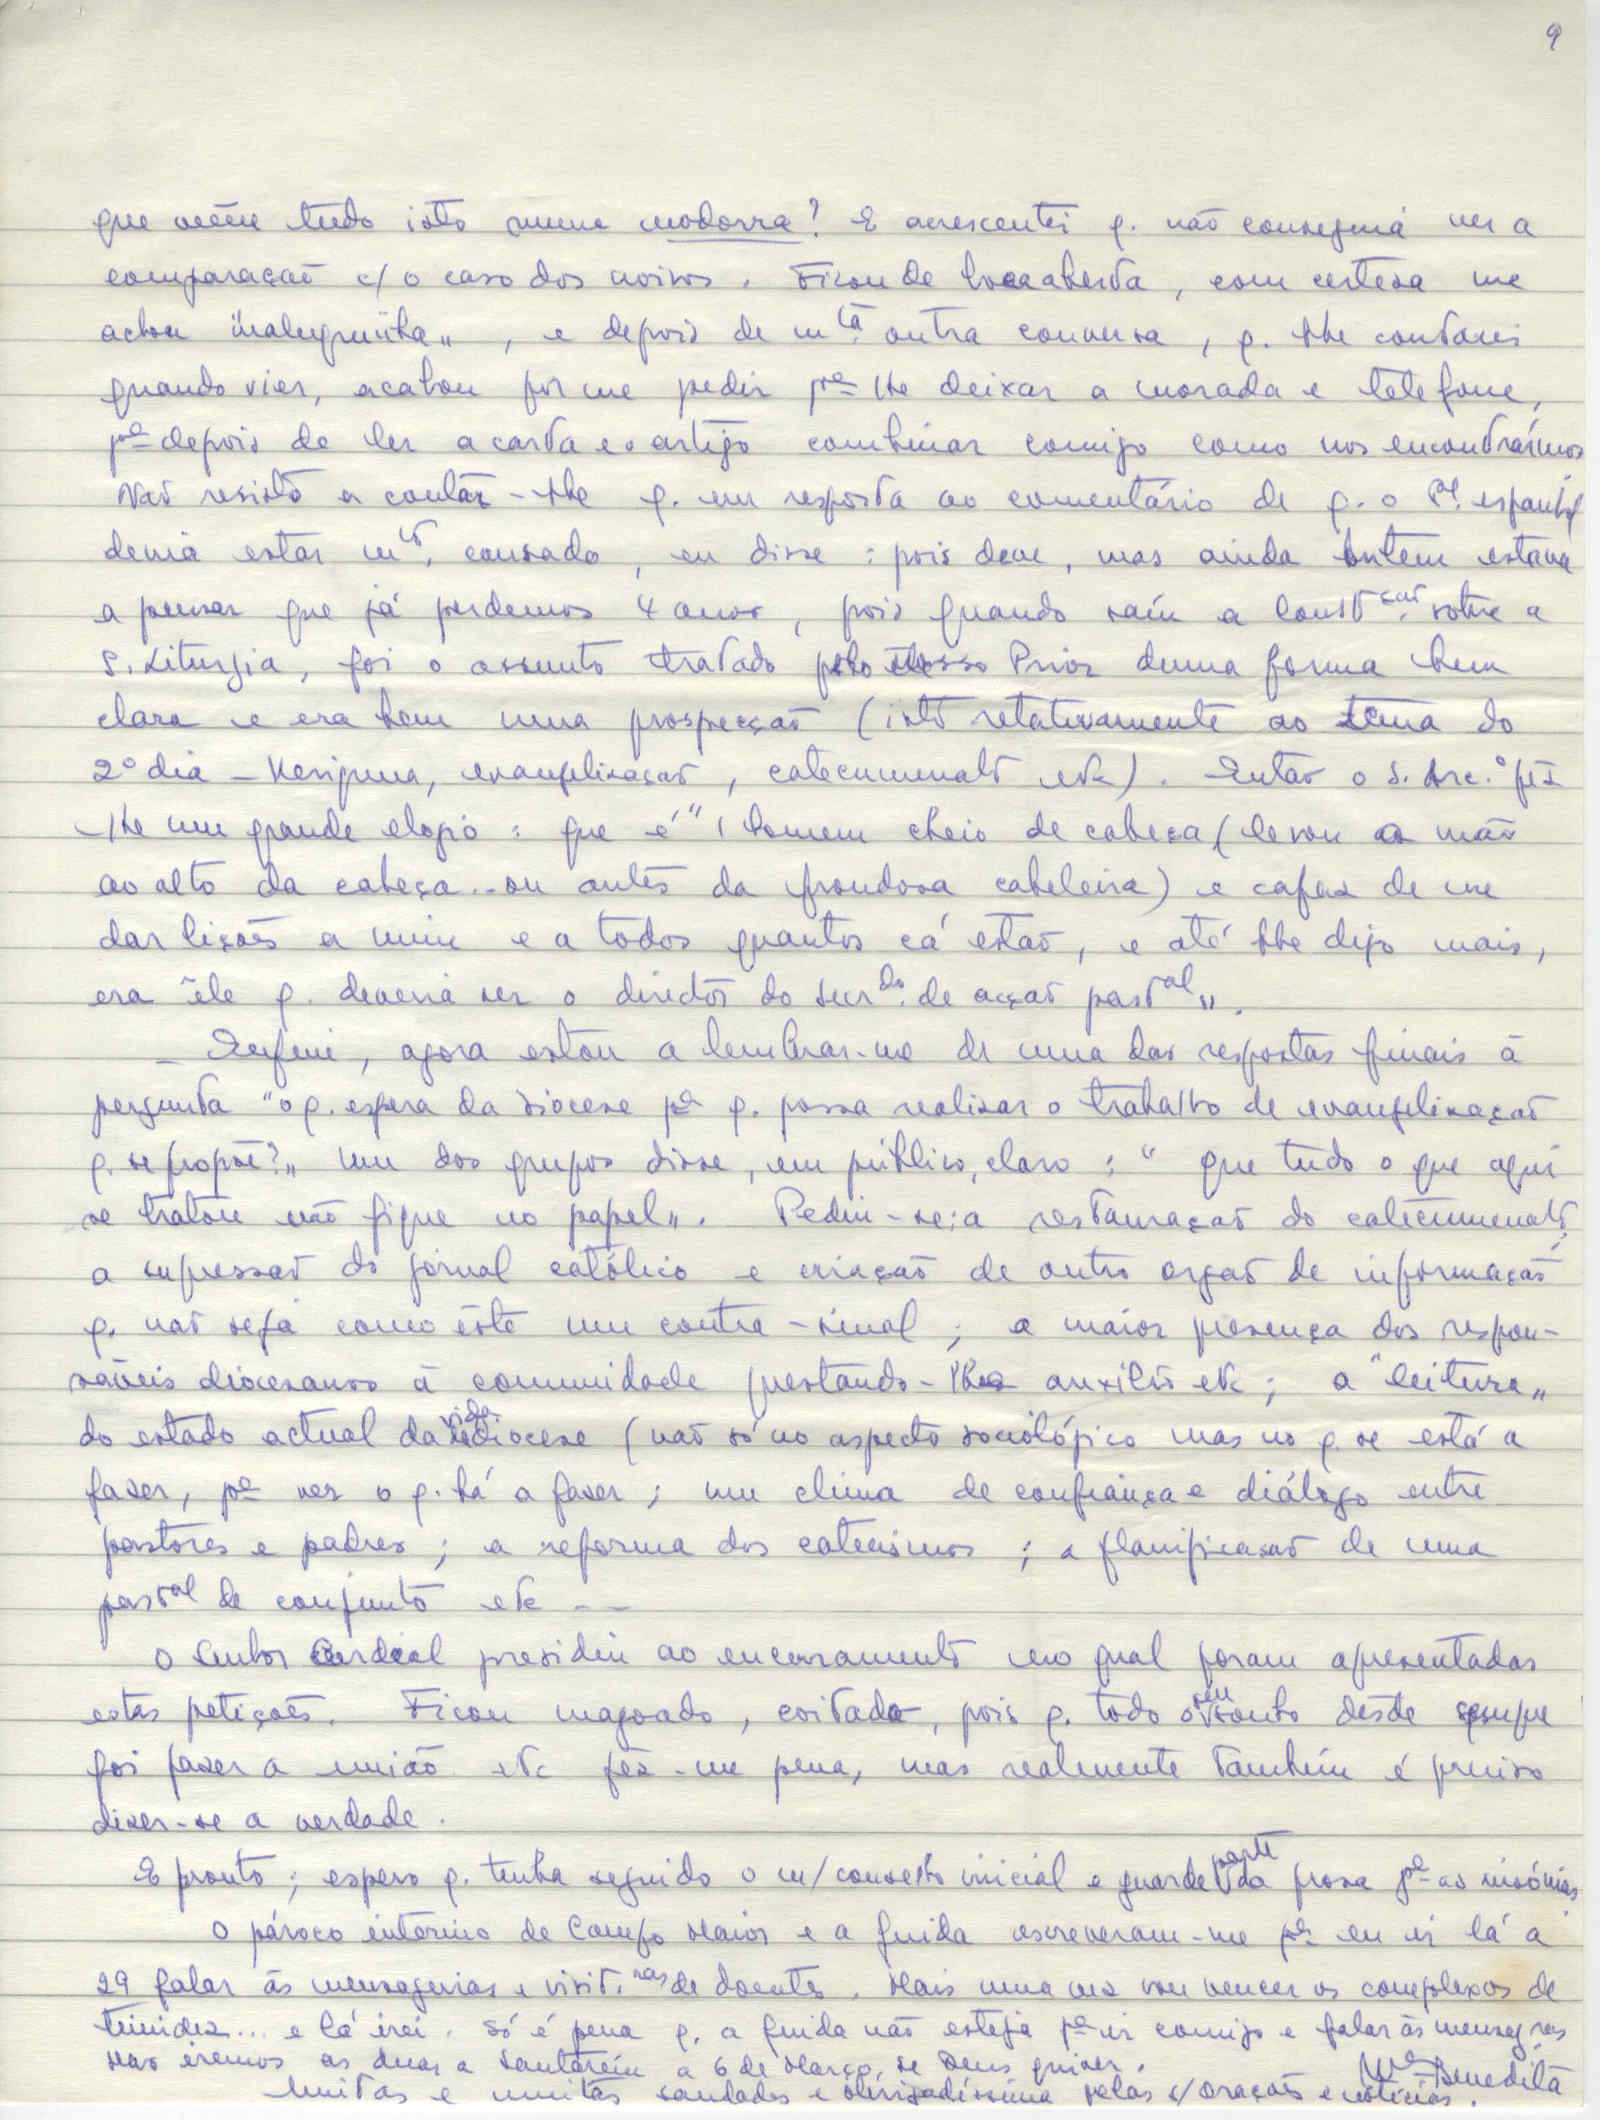 9
que vêem tudo isto numa modorra? E acrescentei q. não conseguia ver a
comparação c/ o caso dos noivos. Ficou de boca aberta, com certeza me
achou "malegruiita", e depois de mta. outra conversa, q. lhe contarei
quando vier, acabou por me pedir pa lhe deixar a morada e telefone,
pa depois de ler a carta e o artigo combinar comigo como nos encontrarímos
Não resisto a contar-lhe q. em resposta ao comentário de q. o Pe. espanhol
devia estar mto. cansado, eu disse: pois deve, mas ainda ontem estava
a pensar que já perdemos 4 anos, pois quando saíu a Constção. sobre a
S. Liturgia, foi o assunto tratado pelo nosso Prior duma forma bem
clara e era bem uma prospecção (isto relativamente ao tema do
2º dia - Kerigma, evangelização, catecumenato etc). Então o S. Arc.º fêz
-lhe um grande elogio: que é "1 homem cheio de cabeça (levou a mão
ao alto da cabeça... ou antes da frondosa cabeleira) e capaz de me
dar lições a mim e a todos quantos cá estão, e até lhe digo mais,
era êle q. deveria ser o director do Secrdo. de acção pastal".
- Enfim, agora estou a lembrar-me de uma das respostas finais à
pergunta "o q. espera da Diocese pa q. possa realizar o trabalho de evangelização
q. se propõe?" Um dos grupos disse, em público, claro: "que tudo o que aqui
se tratou não fique no papel". Pediu-se: a restauração do catecumenato,
a supressão do jornal católico e criação de outro orgão de informação
q. não seja como êste um contra-sinal; a maior presença dos respon-
sáveis diocesanos à comunidade prestando-lhe auxílio etc; a "leitura"
do estado actual da vida diocese (não só no aspecto sociológico mas no q. se está a
fazer, pa ver o q. há a fazer; um clima de confiança e diálogo entre
pastores e padres; a reforma dos catecismos; a planificação de uma
pastal de conjunto etc --
O Senhor Cardeal presidiu ao encerramento no qual foram apresentadas
estas petições. Ficou magoado, coitado, pois q. todo o seu sonho desde sempre
foi fazer a união etc fêz-me pena, mas realmente também é preciso
dizer-se a verdade.
E pronto; espero q. tenha seguido o m/ conselho inicial e guarde parte da prosa pa as insónias
O pároco interino de Campo Maior e a Guida escreveram-me pa eu ir lá a
29 falar às mensageiras e visit.ras de doentes. Mais uma vez vou vencer os complexos de
timidez... e lá irei. Só é pena q. a Guida não esteja pa ir comigo e falar às mensegras
Mas iremos as duas a Santarém a 6 de Março, se Deus quiser.
Ma Benedita
Muitas e muitas saudades e obrigadíssima pelas s/ orações e notícias.